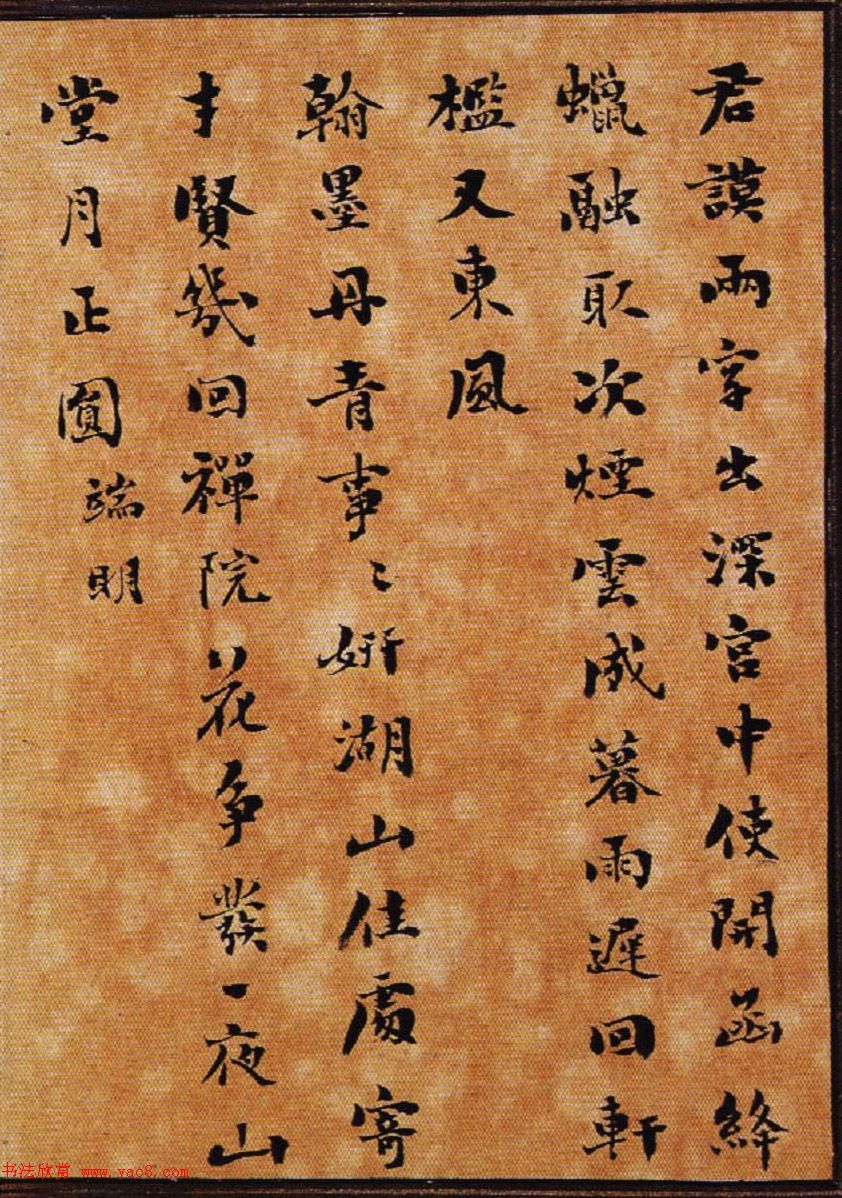 君謨兩字出深宮中使開函絳
蠟融取次煙雲成暮雨遲回軒
檻又東風
翰墨丹青事〻妍湖山佳處寄
才賢幾回禪院花爭發一夜山
堂月正圓端明
书法欣赏 www.yac8.com